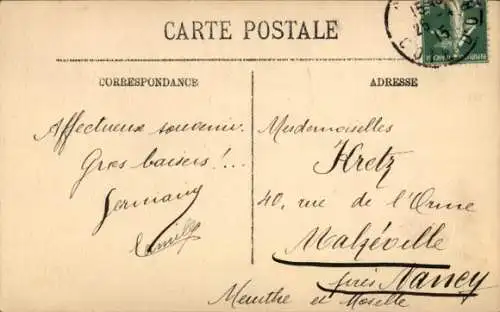 CARTE POSTALE
CORRESPONDANCE
ADRESSE
Affectueux souvenir.
Gros baisers !...
Germany
Camille
Mesdemoiselles
Kretz
40, rue de l'Orme
Malzéville
près Nancy
Meurthe et Moselle
15
25
15